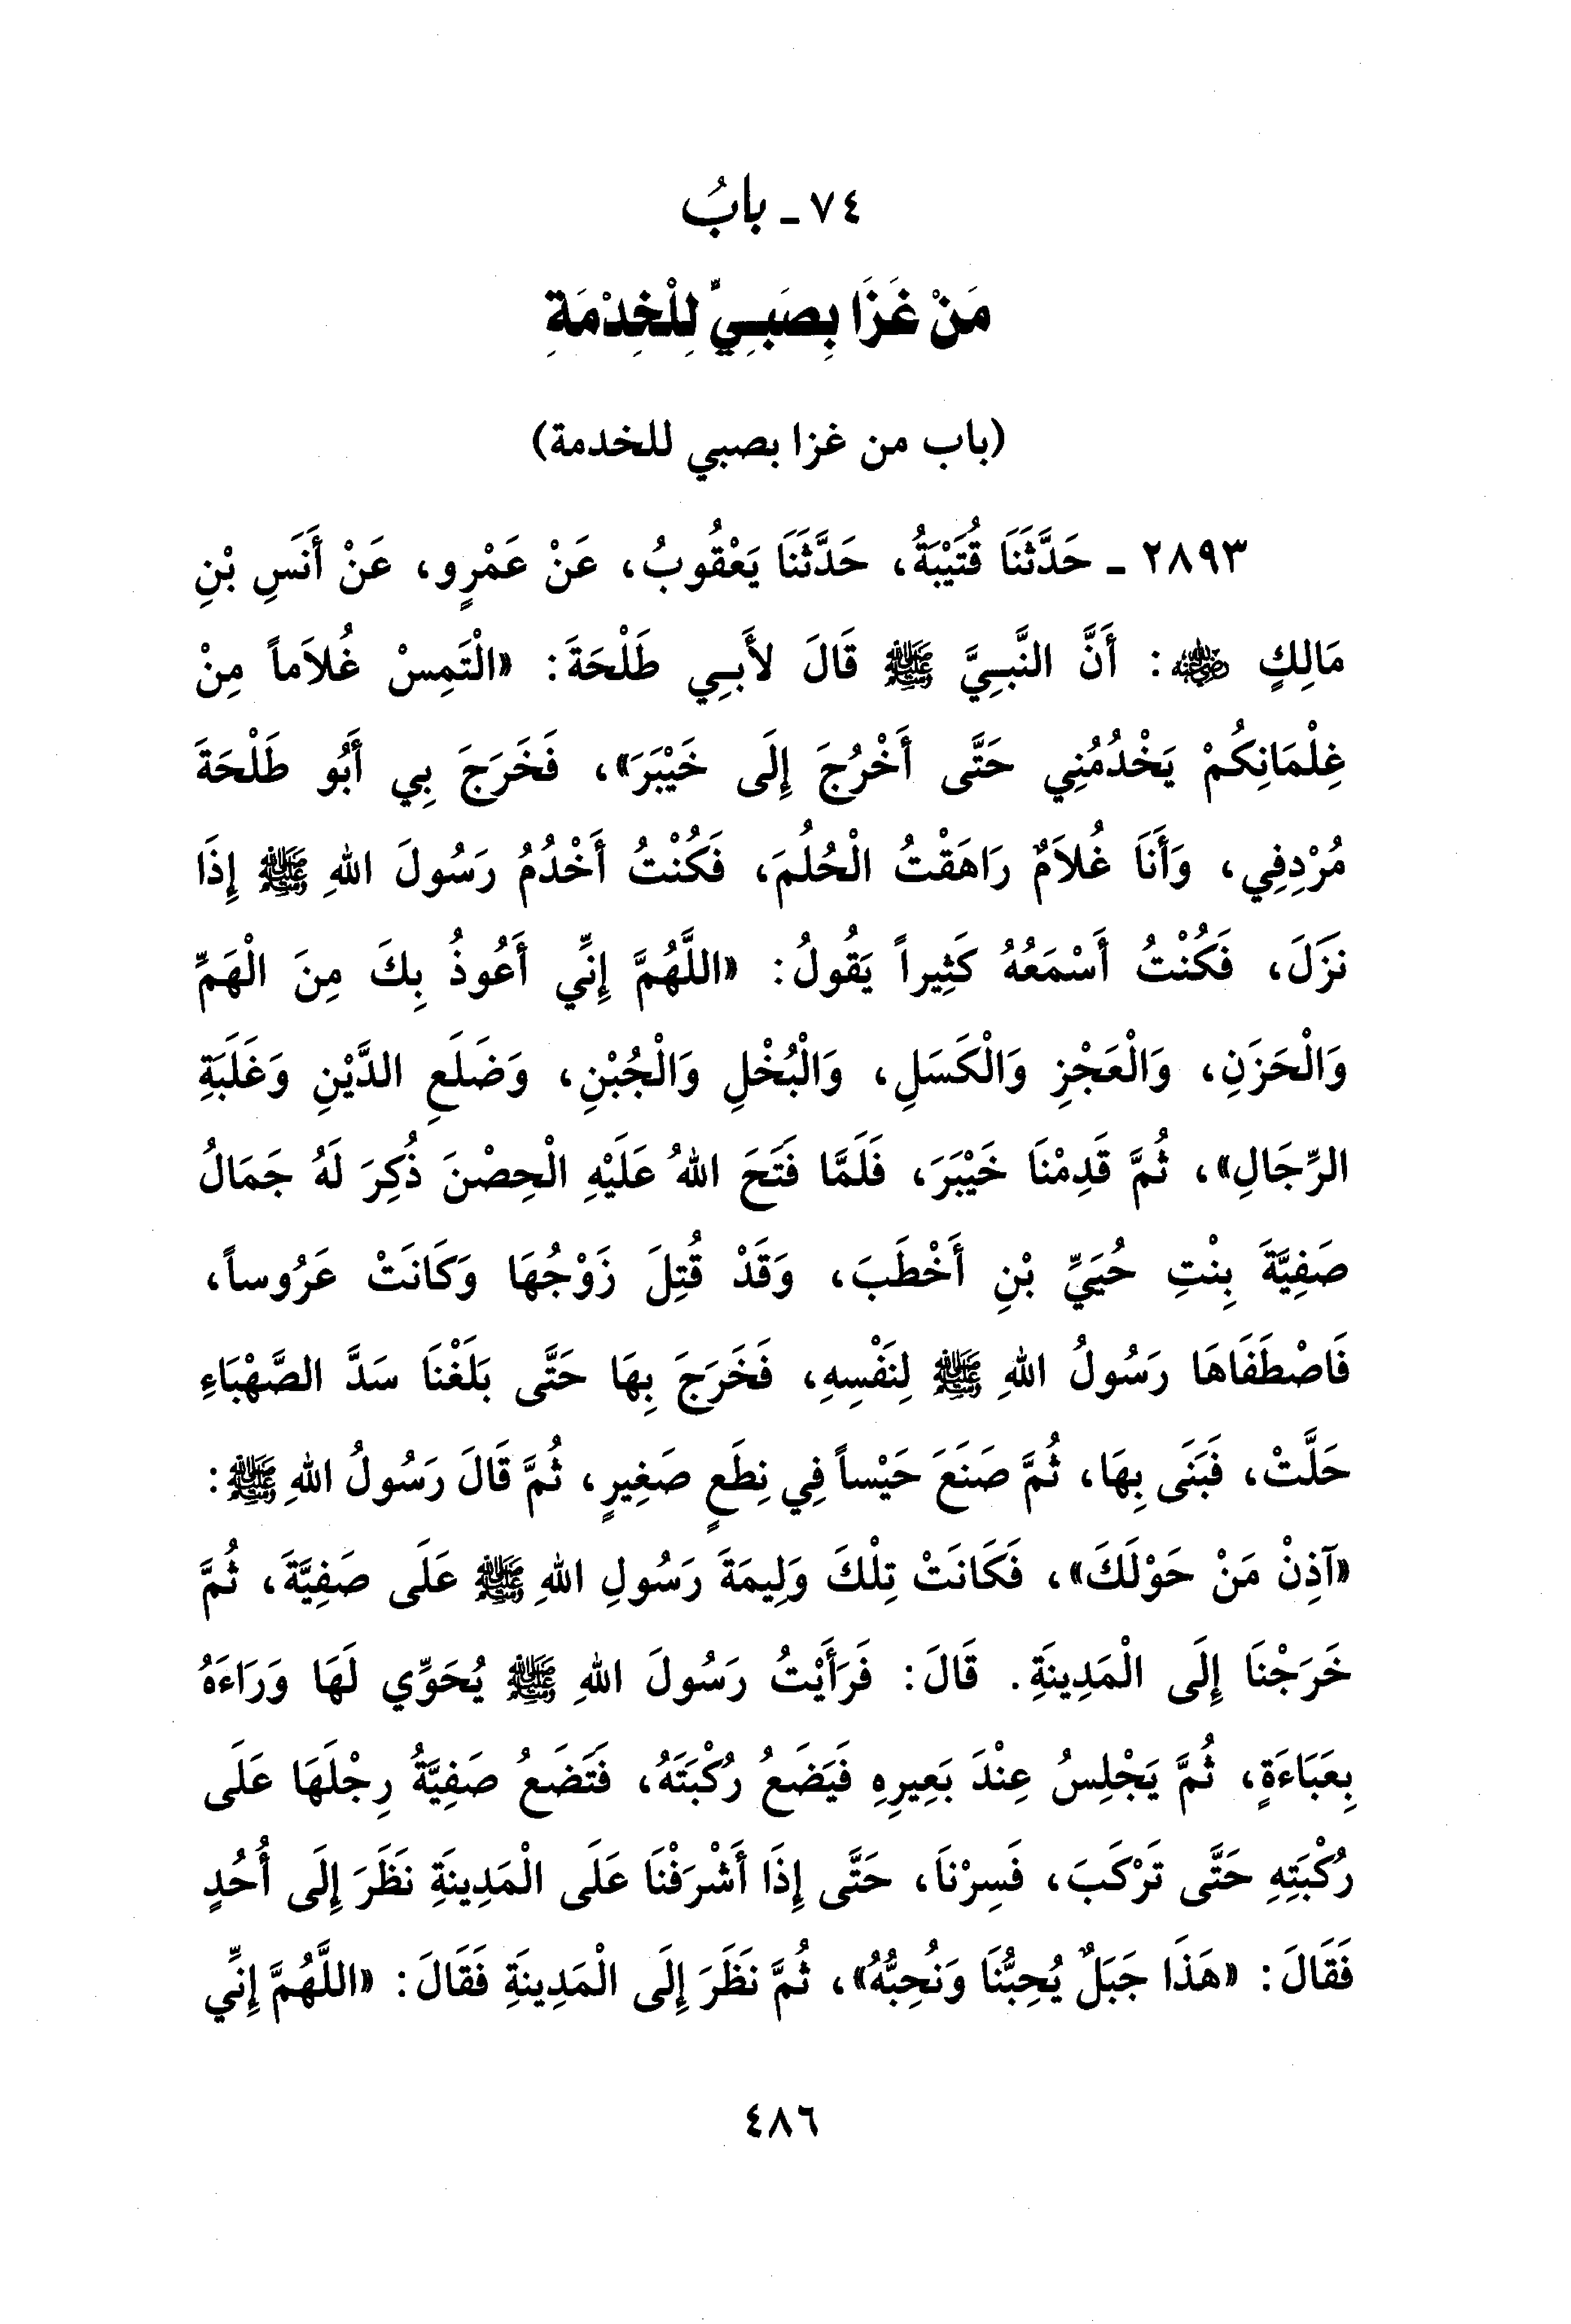 ٧٤ ـ بابُ
مَنْ غَزَا بِصَبِيٍّ لِلْخِدْمَةِ
(باب من غزا بصبي للخدمة)
٢٨٩٣ ـ حَدَّثَنَا قُتَيْبَةُ، حَدَّثَنَا يَعْقُوبُ، عَنْ عَمْرٍو، عَنْ أَنَسِ بْنِ
مَالِكٍ رضي الله عنه: أَنَّ النَّبِيَّ ﷺ قَالَ لأَبِي طَلْحَةَ: «الْتَمِسْ غُلاَماً مِنْ
غِلْمَانِكُمْ يَخْدُمُنِي حَتَّى أَخْرُجَ إِلَى خَيْبَرَ»، فَخَرَجَ بِي أَبُو طَلْحَةَ
مُرْدِفِي، وَأَنَا غُلاَمٌ رَاهَقْتُ الْحُلُمَ، فَكُنْتُ أَخْدُمُ رَسُولَ اللهِ ﷺ إِذَا
نَزَلَ، فَكُنْتُ أَسْمَعُهُ كَثِيراً يَقُولُ: «اللَّهُمَّ إِنِّي أَعُوذُ بِكَ مِنَ الْهَمِّ
وَالْحَزَنِ، وَالْعَجْزِ وَالْكَسَلِ، وَالْبُخْلِ وَالْجُبْنِ، وَضَلَعِ الدَّيْنِ وَغَلَبَةِ
الرِّجَالِ»، ثُمَّ قَدِمْنَا خَيْبَرَ، فَلَمَّا فَتَحَ اللهُ عَلَيْهِ الْحِصْنَ ذُكِرَ لَهُ جَمَالُ
صَفِيَّةَ بِنْتِ حُيَيِّ بْنِ أَخْطَبَ، وَقَدْ قُتِلَ زَوْجُهَا وَكَانَتْ عَرُوساً،
فَاصْطَفَاهَا رَسُولُ اللهِ ﷺ لِنَفْسِهِ، فَخَرَجَ بِهَا حَتَّى بَلَغْنَا سَدَّ الصَّهْبَاءِ
حَلَّتْ، فَبَنَى بِهَا، ثُمَّ صَنَعَ حَيْساً فِي نِطَعٍ صَغِيرٍ، ثُمَّ قَالَ رَسُولُ اللهِ ﷺ:
«آذِنْ مَنْ حَوْلَكَ»، فَكَانَتْ تِلْكَ وَلِيمَةَ رَسُولِ اللهِ ﷺ عَلَى صَفِيَّةَ، ثُمَّ
خَرَجْنَا إِلَى الْمَدِينَةِ. قَالَ: فَرَأَيْتُ رَسُولَ اللهِ ﷺ يُحَوِّي لَهَا وَرَاءَهُ
بِعَبَاءَةٍ، ثُمَّ يَجْلِسُ عِنْدَ بَعِيرِهِ فَيَضَعُ رُكْبَتَهُ، فَتَضَعُ صَفِيَّةُ رِجْلَهَا عَلَى
رُكْبَتِهِ حَتَّى تَرْكَبَ، فَسِرْنَا، حَتَّى إِذَا أَشْرَفْنَا عَلَى الْمَدِينَةِ نَظَرَ إِلَى أُحُدٍ
فَقَالَ: «هَذَا جَبَلٌ يُحِبُّنَا وَنُحِبُّهُ»، ثُمَّ نَظَرَ إِلَى الْمَدِينَةِ فَقَالَ: «اللَّهُمَّ إِنِّي
٤٨٦